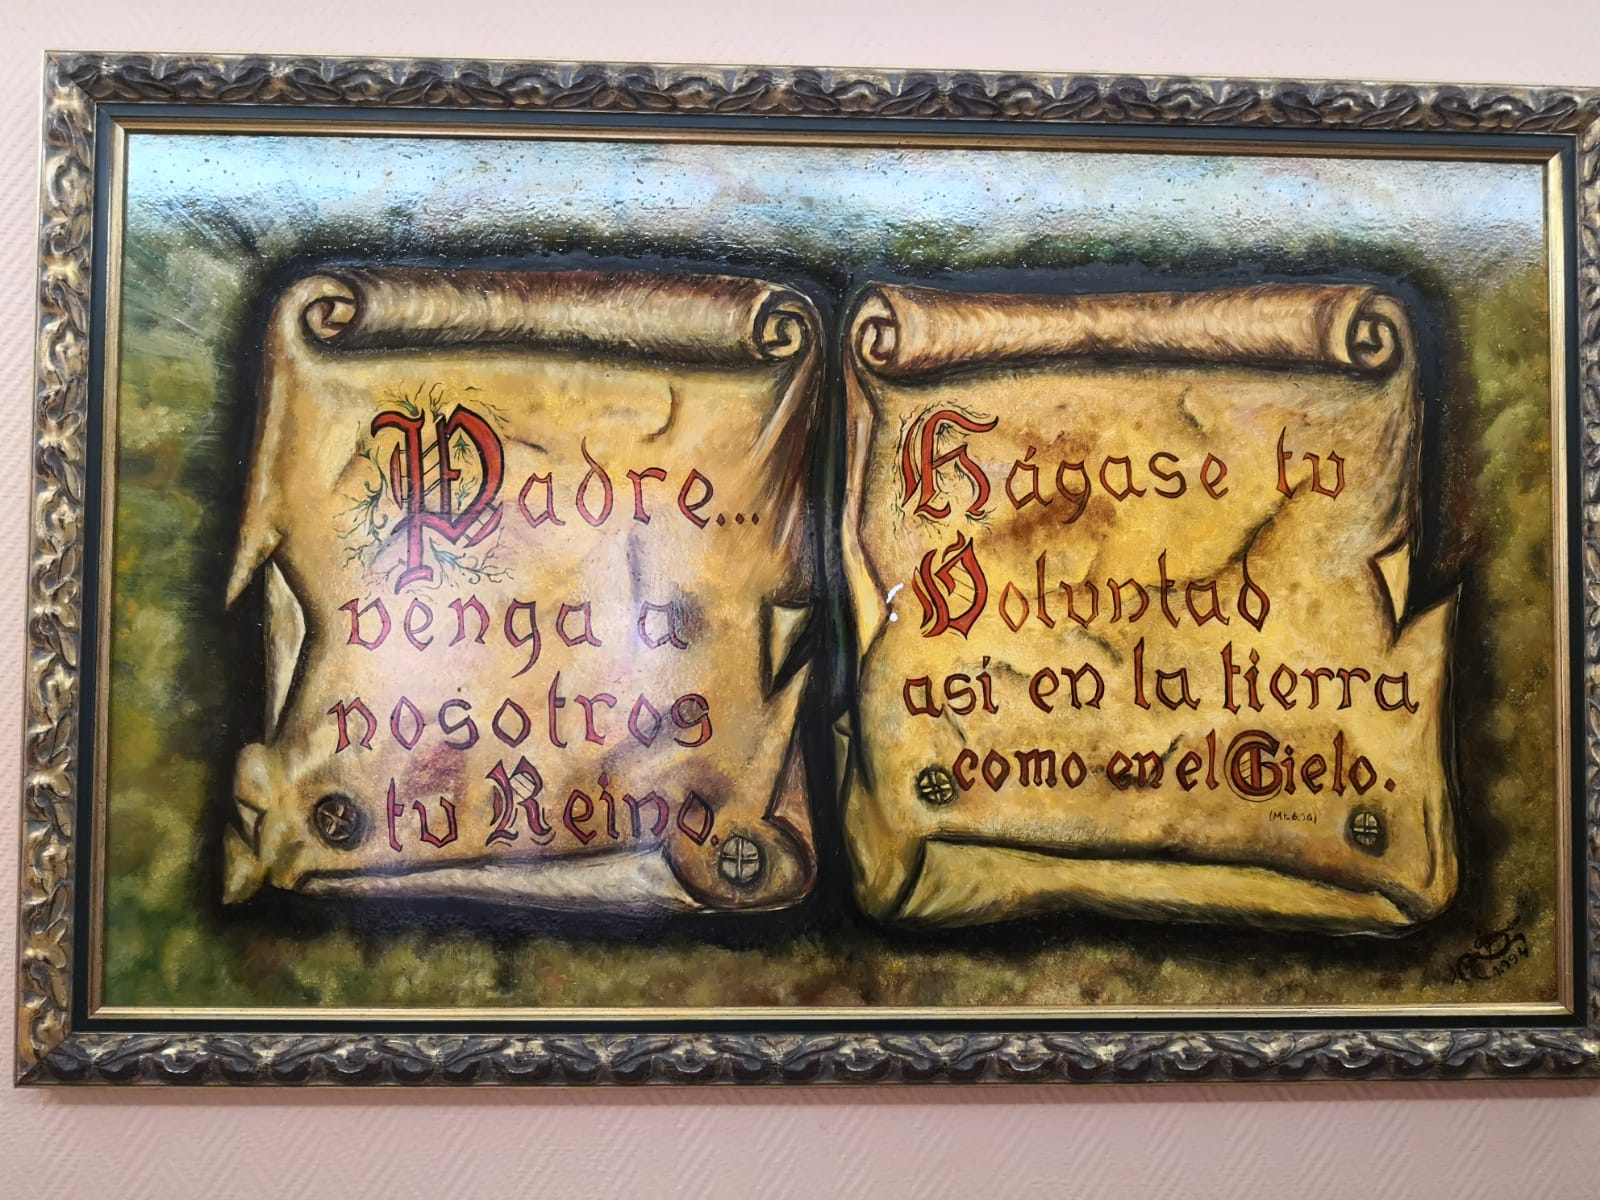 Padre...
venga a
nosotros
tu Reino.
Hágase tu
Voluntad
así en la tierra
como en el Cielo.
1994